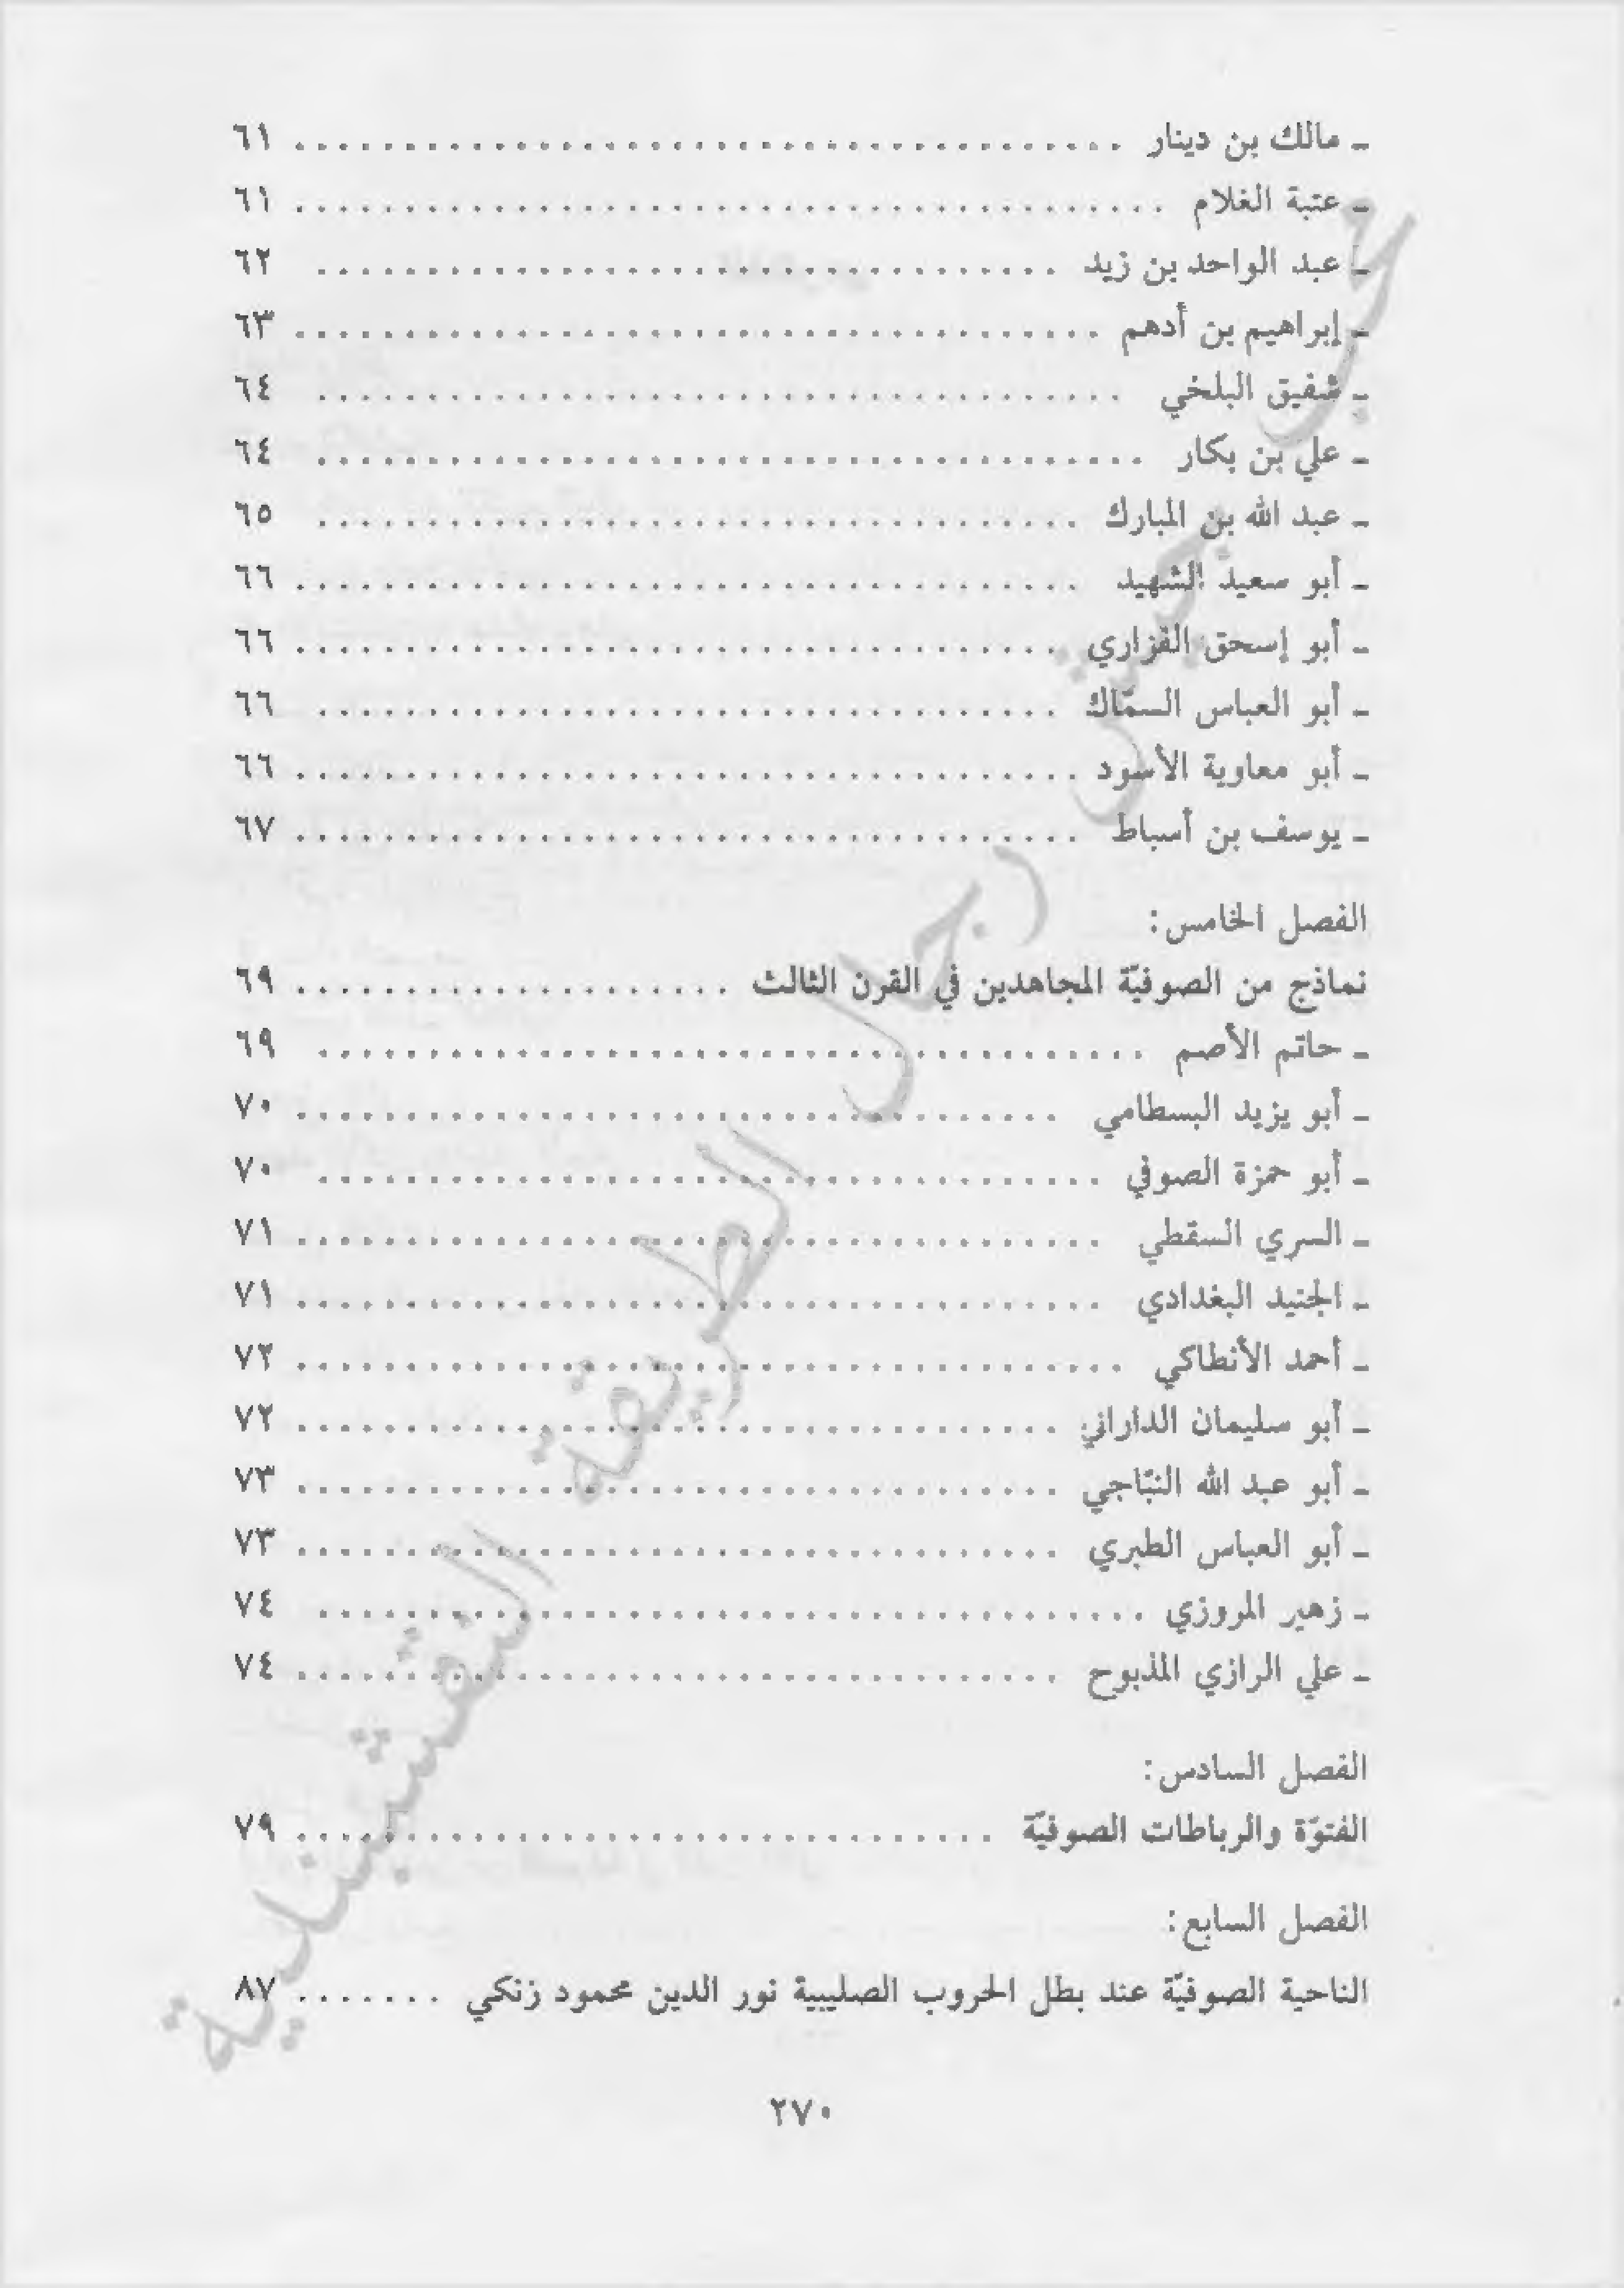 ـ مالك بن دينار ..... ٦١
ـ عتبة الغلام ..... ٦١
ـ عبد الواحد بن زيد ..... ٦٢
ـ إبراهيم بن أدهم ..... ٦٣
ـ شفيق البلخي ..... ٦٤
ـ علي بن بكار ..... ٦٤
ـ عبد الله بن المبارك ..... ٦٥
ـ أبو سعيد الشهيد ..... ٦٦
ـ أبو إسحق الفزاري ..... ٦٦
ـ أبو العباس السمّاك ..... ٦٦
ـ أبو معاوية الأسود ..... ٦٦
ـ يوسف بن أسباط ..... ٦٧
الفصل الخامس:
نماذج من الصوفيّة المجاهدين في القرن الثالث ..... ٦٩
ـ حاتم الأصم ..... ٦٩
ـ أبو يزيد البسطامي ..... ٧٠
ـ أبو حمزة الصوفي ..... ٧٠
ـ السري السقطي ..... ٧١
ـ الجنيد البغدادي ..... ٧١
ـ أحمد الأنطاكي ..... ٧٢
ـ أبو سليمان الداراني ..... ٧٢
ـ أبو عبد الله النبّاجي ..... ٧٣
ـ أبو العباس الطبري ..... ٧٣
ـ زهير المروزي ..... ٧٤
ـ علي الرازي المذبوح ..... ٧٤
الفصل السادس:
الفتوّة والرباطات الصوفيّة ..... ٧٩
الفصل السابع:
الناحية الصوفيّة عند بطل الحروب الصليبية نور الدين محمود زنكي ..... ٨٧
٢٧٠
رجال الطريقة النقشبندية